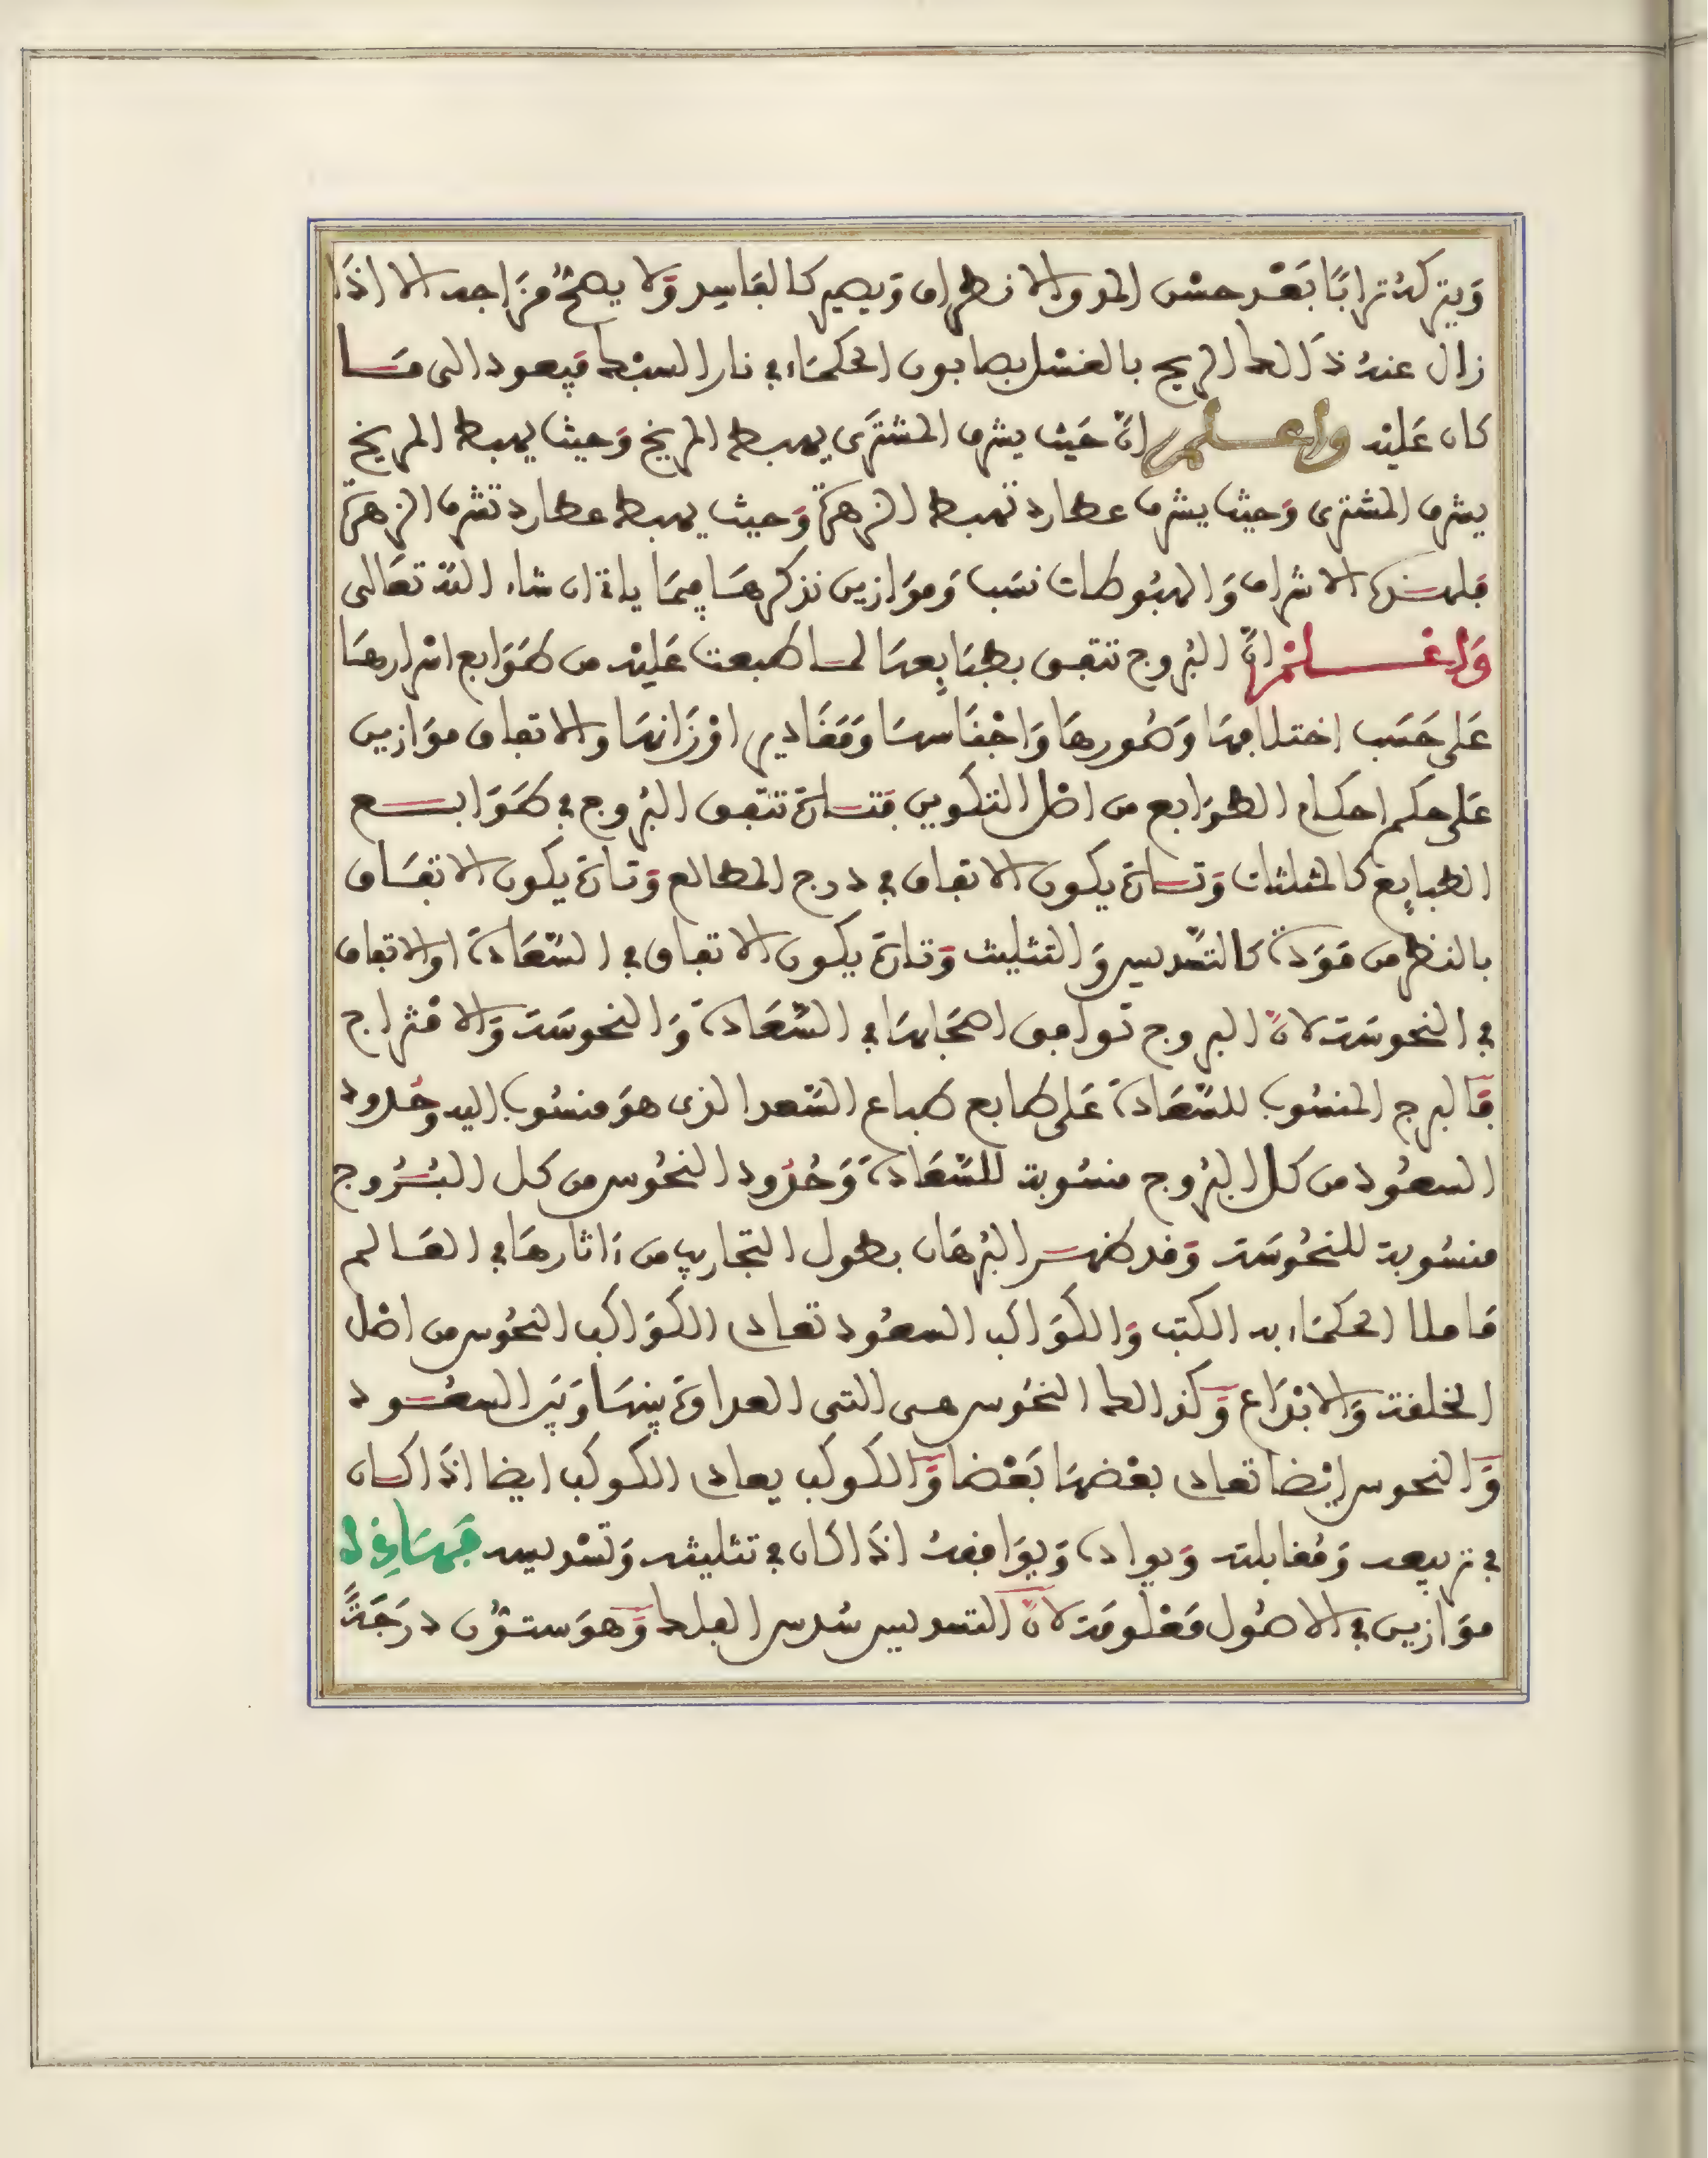 وَيتركهُ ترابًا بَعْد حسْن المد والانطراف وَيصير كالفاسِد وَلا يصحُّ مزَاجه الا اذَا
زال عنهُ ذَالك الريح بالغسْل بصابون الحكمَاء في نار السبْك فيعود الى مَا
كان عَليْه واعلم انّ حَيْث يشرف المشترَى يهبط المريخ وَحيث يهبط المريخ
يشرف المشترى وَحيث يشرف عطارد تهبط الزهرَة وَحيث يهبط عطارد تشرف الزهرَة
فلهـذه الاشراف وَالهبُوطات نسَب وَموَازين نذكرهَا فِيمَا ياتي ان شاء اللّه تعَالى
وَاعْلمْ انّ البُروج تتفق بطبَايِعهَا لما طبعت عَليْه من طوَابع اسْرارهَا
عَلى حَسَب اختلافهَا وَصُورهَا وَاجْنَاسهَا وَمَقَادير اوْزَانهَا والاتفاق موَازين
عَلى حكم احكام الطوَابع من اصْل التكوين فتارَة تتفق البُروج في طوَابع
الطبايِع كالمثلثات وَتارَة يكون الاتفاق في درج المطالع وَتارَة يكون الاتفَاق
بالنظر من مَوَدّة كالتسْديس وَالتثليث وَتارَة يكون الاتفاق في السّعَادَة اوالاتفاق
في النحوسَة لانّ البروج توافق اصحَابهَا في السّعَادَة وَالنحوسَة وَالامْتزاج
فَالبرج المنسُوب للسّعَادَة عَلى طابع طباع السّعد الذى هوَ منسُوب اليه وحُدود
السعُود من كل البُروج منسُوبة للسّعَادَة وَحُدُود النحُوس من كل البُرُوج
منسُوبة للنحُوسَة وَقد ظهر البُرهَان بطول التجارِب من ءاثارهَا في العَالم
فاملا الحكمَاء به الكتب وَالكوَاكب السعُود تعادى الكوَاكب النحُوس من اصْل
الخلقة وَالابْدَاع وَكذالك النحُوس هى التى العداوَة بينهَا وَبَيْن السعُود
وَالنحوس ايْضا تعادى بعْضهَا بَعْضا وَالكوكب يعادى الكوكب ايضا اذَا كان
في تربيعه وَمُقابلته وَيوادَه وَيوَافقهُ اذَا كان في تثليثه وَتسْديسه فَهَاذِه
موَازين في الاصُول مَعْلومَة لانّ التسديس سُدس الفلك وَهوَ ستّون درَجَةً